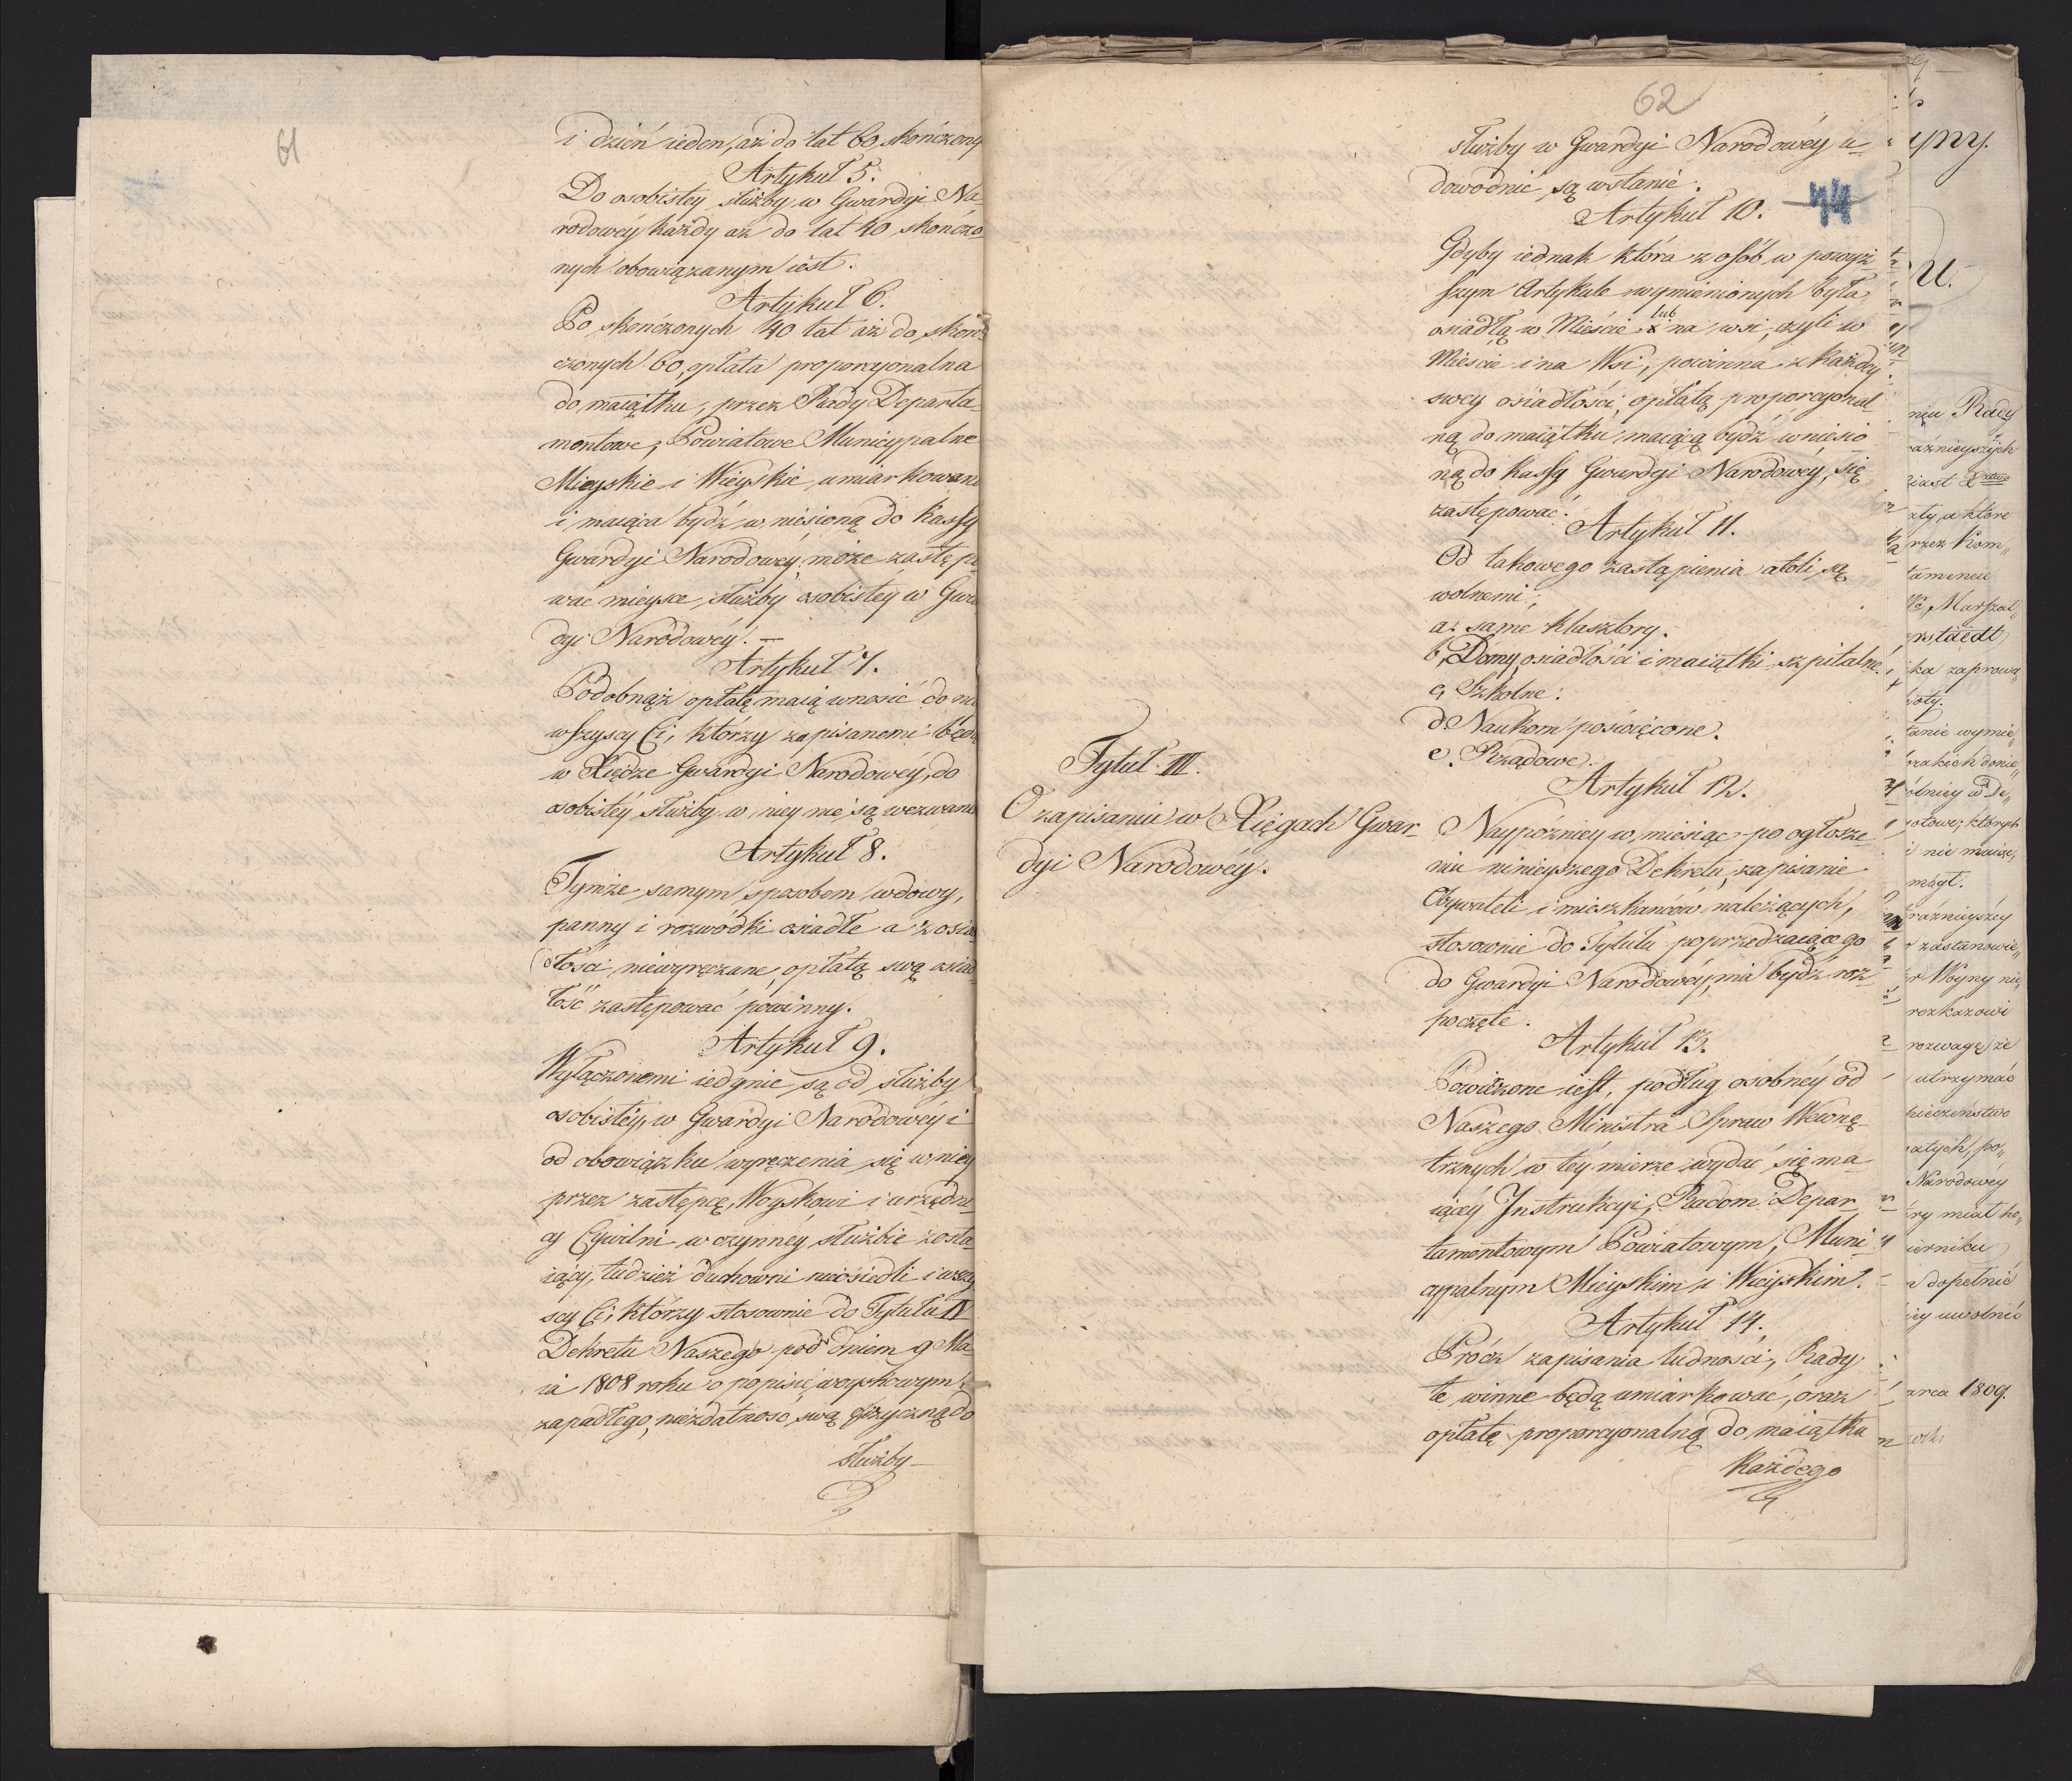 61
i dzień ieden, aż do lat 60 skończony
Artykuł 5.
Do osobistey służby w Gwardyi Na-
rodowéy każdy aż do lat 40 skończo-
nych obowiązanym iest.
Artykuł 6.
Po skończonych 40 lat aż do skoń-
czonych 60, opłata proporcyonalna
do maiątku, przez Rady Departa-
mentowe, Powiatowe Municypalne
Mieyskie i Wieyskie umiarkowana
i maiąca bydź wniesioną do kassy
Gwardyi Narodowéy może zastępo
wać mieysce służby osobistéy w Gwa
dyi Narodowéy. —
Artykuł 7.
Podobnąż opłatę maią wnosić do
wszyscy Ci, którzy zapisanemi będ
w Xiędze Gwardyi Narodowéy, do
osobistéy służby w niey nie są wezwani
Artykuł 8.
Tymże samym sposobem wdowy,
panny i rozwódki osiadłe a z osia
dłości niewyręczane, opłatą swą osiad
łość zastępować powinny.
Artykuł 9.
Wyłączonemi iedynie są od służby
osobistéy w Gwardyi Narodowéy i
od obowiązku wyręczenia się w niey
przez zastępcę, Woyskowi i urzędni
cy Cywilni w czynnéy służbie zosta
iący, tudzież duchowni nieosiedli i wszy
scy Ci, którzy stosownie do Tytułu IV
Dekretu Naszego pod dniem 9 Ma-
ia 1808 roku o popisie woyskowym
zapadłego, niezdatność swą fizyczną do
służby
62
służby w Gwardyi Narodowéy u-
dowodnić są wstanie.
44
Artykuł 10.
Gdyby iednak która z osób w powyż
szym Artykule wymienionych była
osiadłą w Mieście lub na wsi, czyli w
Mieście i na Wsi, powinna z każdey
swey osiadłości, opłatą proporcyonal-
ną do maiątku maiącą bydź wniesio
ną do kassy Gwardyi Narodowéy, się
zastępować.
Artykuł 11.
Od takowego zastąpienia atoli są
wolnemi;
a. same klasztory.
b, Domy, osiadłości i maiątki szpitalne.
c, Szkolne.
d Naukom poświęcone.
e. Rządowe.
Tytuł III.
O zapisaniu w Xięgach Gwar-
dyi Narodowéy.
Artykuł 12.
Naypóźniey w miesiąc po ogłosze
niu ninieyszego Dekretu, zapisanie
Obywateli i mieszkańców należących,
stosownie do Tytułu poprzedzaiącego
do Gwardyi Narodowéy, ma bydź roz
poczęte.
Artykuł 13.
Powierzone iest, podług osobnéy od
Naszego Ministra Spraw Wewnę-
trznych w téy mierze wydać się ma-
iącéy Instrukcyi, Radom Depar
tamentowym Powiatowym, Muni-
cypalnym Mieyskim i Wieyskim.
Artykuł 14.
Prócz zapisania ludności, Rady
te winne będą umiarkować, oraz
opłatę proporcyonalną do maiątku
każdego
niu Rady
rzez Kom„
Narodowéy
arca 1809.